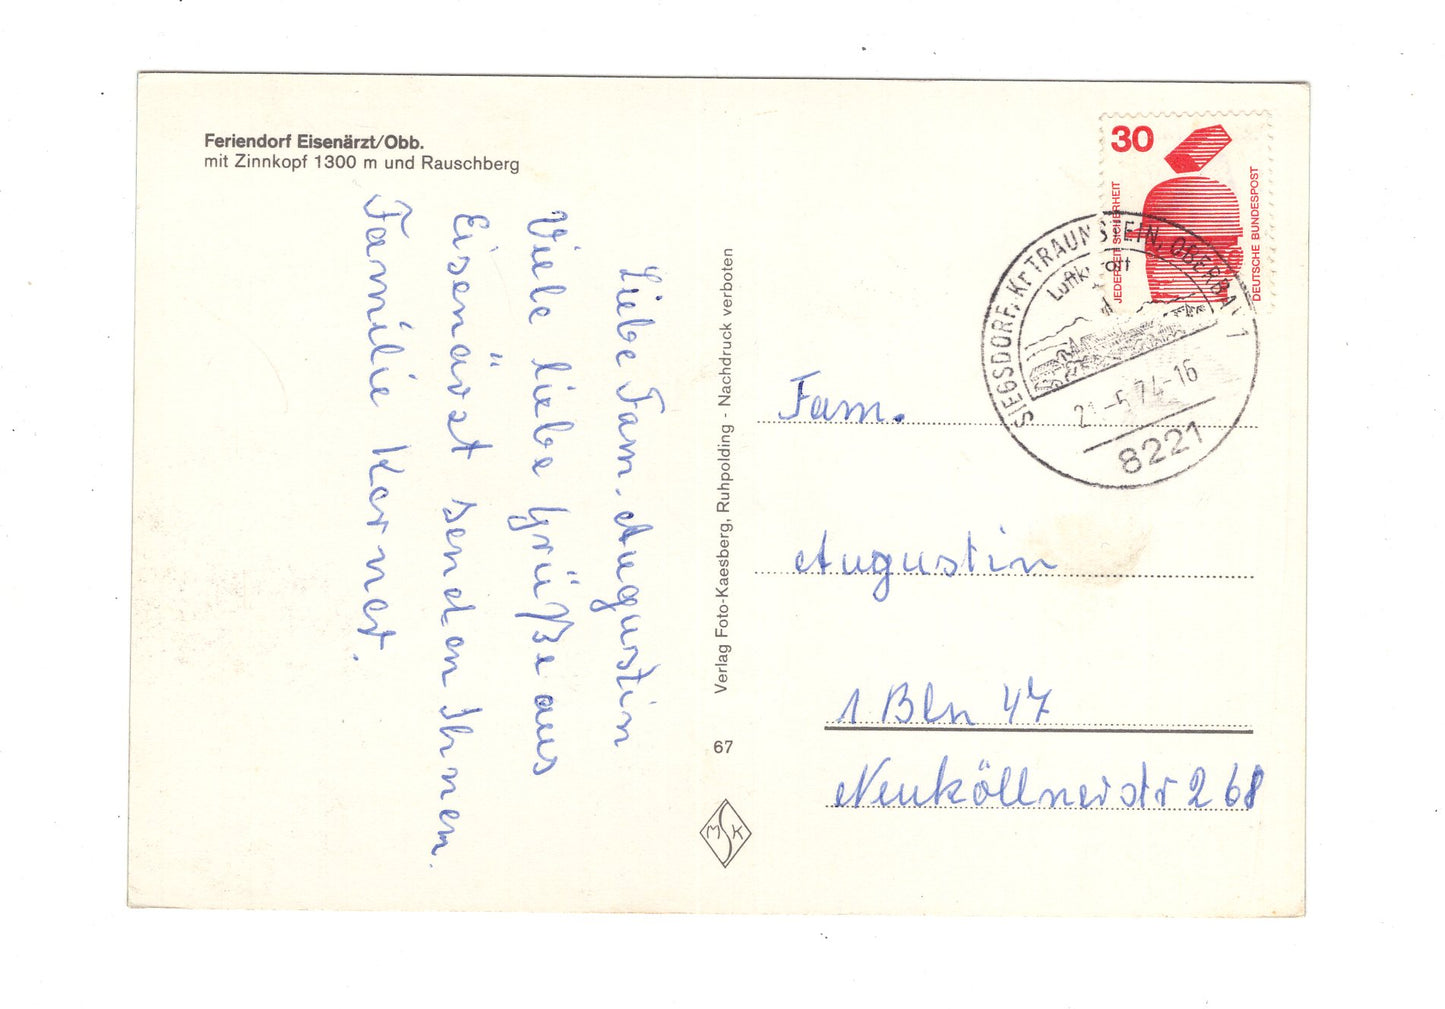 Feriendorf Eisenärzt/Obb.
mit Zinnkopf 1300 m und Rauschberg
Liebe Fam. Augustin
Viele liebe Grüße aus
Eisenärzt senden Ihnen
Familie
Verlag Foto-Kaesberg, Ruhpolding - Nachdruck verboten
67
MSK
30
JEDERZEIT SICHERHEIT
DEUTSCHE BUNDESPOST
SIEGSDORF, Kr TRAUNSTEIN, OBERBAY 1
Luftkurort
21.-5.74-16
8221
Fam.
Augustin
1 Bln 47
Neuköllnerstr 268